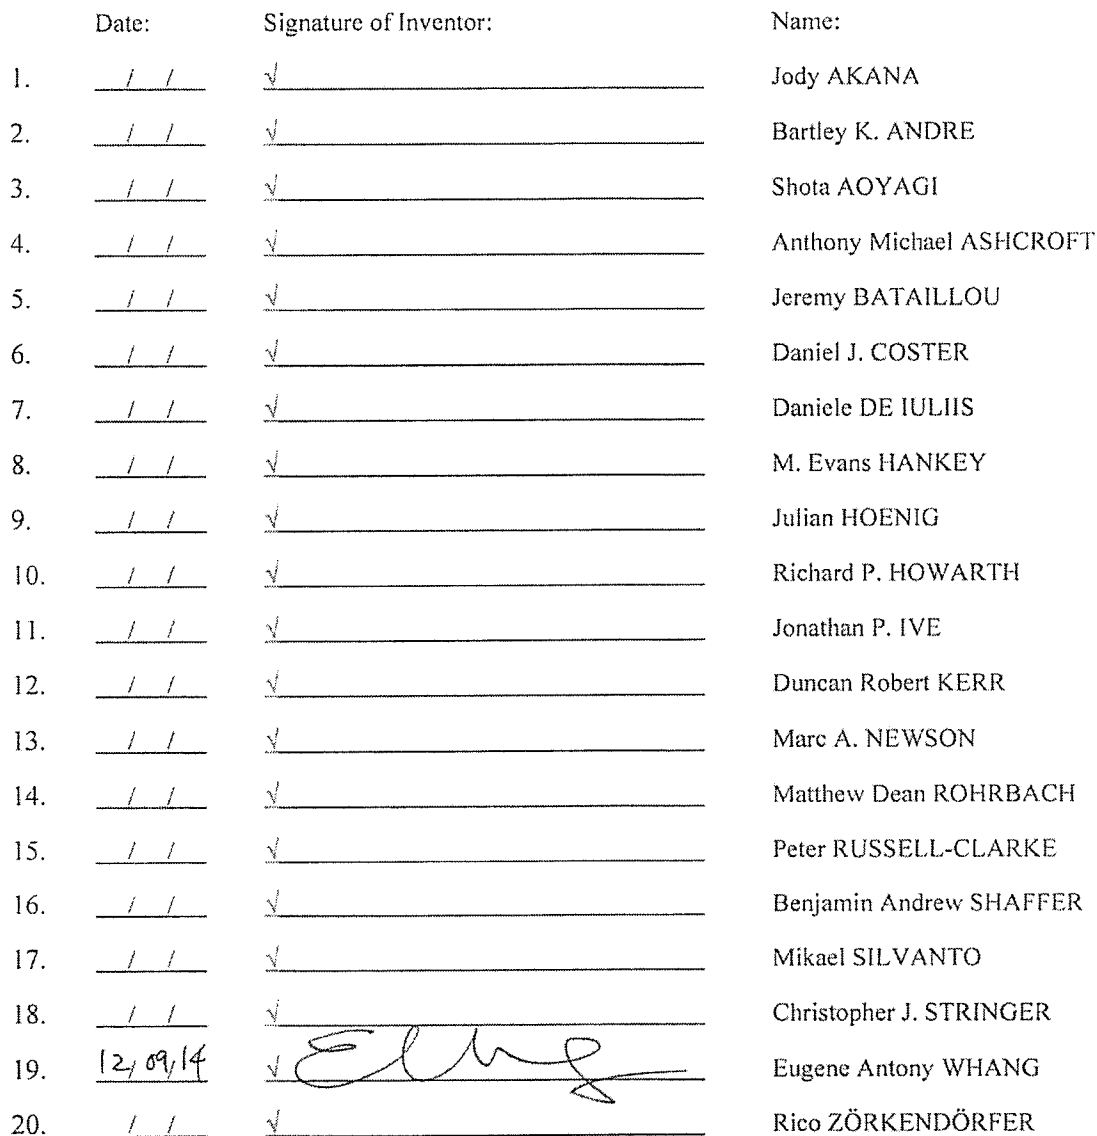 Date: Signature of Inventor: Name:
1. / / √ Jody AKANA
2. / / √ Bartley K. ANDRE
3. / / √ Shota AOYAGI
4. / / √ Anthony Michael ASHCROFT
5. / / √ Jeremy BATAILLOU
6. / / √ Daniel J. COSTER
7. / / √ Daniele DE IULIIS
8. / / √ M. Evans HANKEY
9. / / √ Julian HOENIG
10. / / √ Richard P. HOWARTH
11. / / √ Jonathan P. IVE
12. / / √ Duncan Robert KERR
13. / / √ Marc A. NEWSON
14. / / √ Matthew Dean ROHRBACH
15. / / √ Peter RUSSELL-CLARKE
16. / / √ Benjamin Andrew SHAFFER
17. / / √ Mikael SILVANTO
18. / / √ Christopher J. STRINGER
19. 12/09/14 √ Eugene Antony WHANG
20. / / √ Rico ZÖRKENDÖRFER